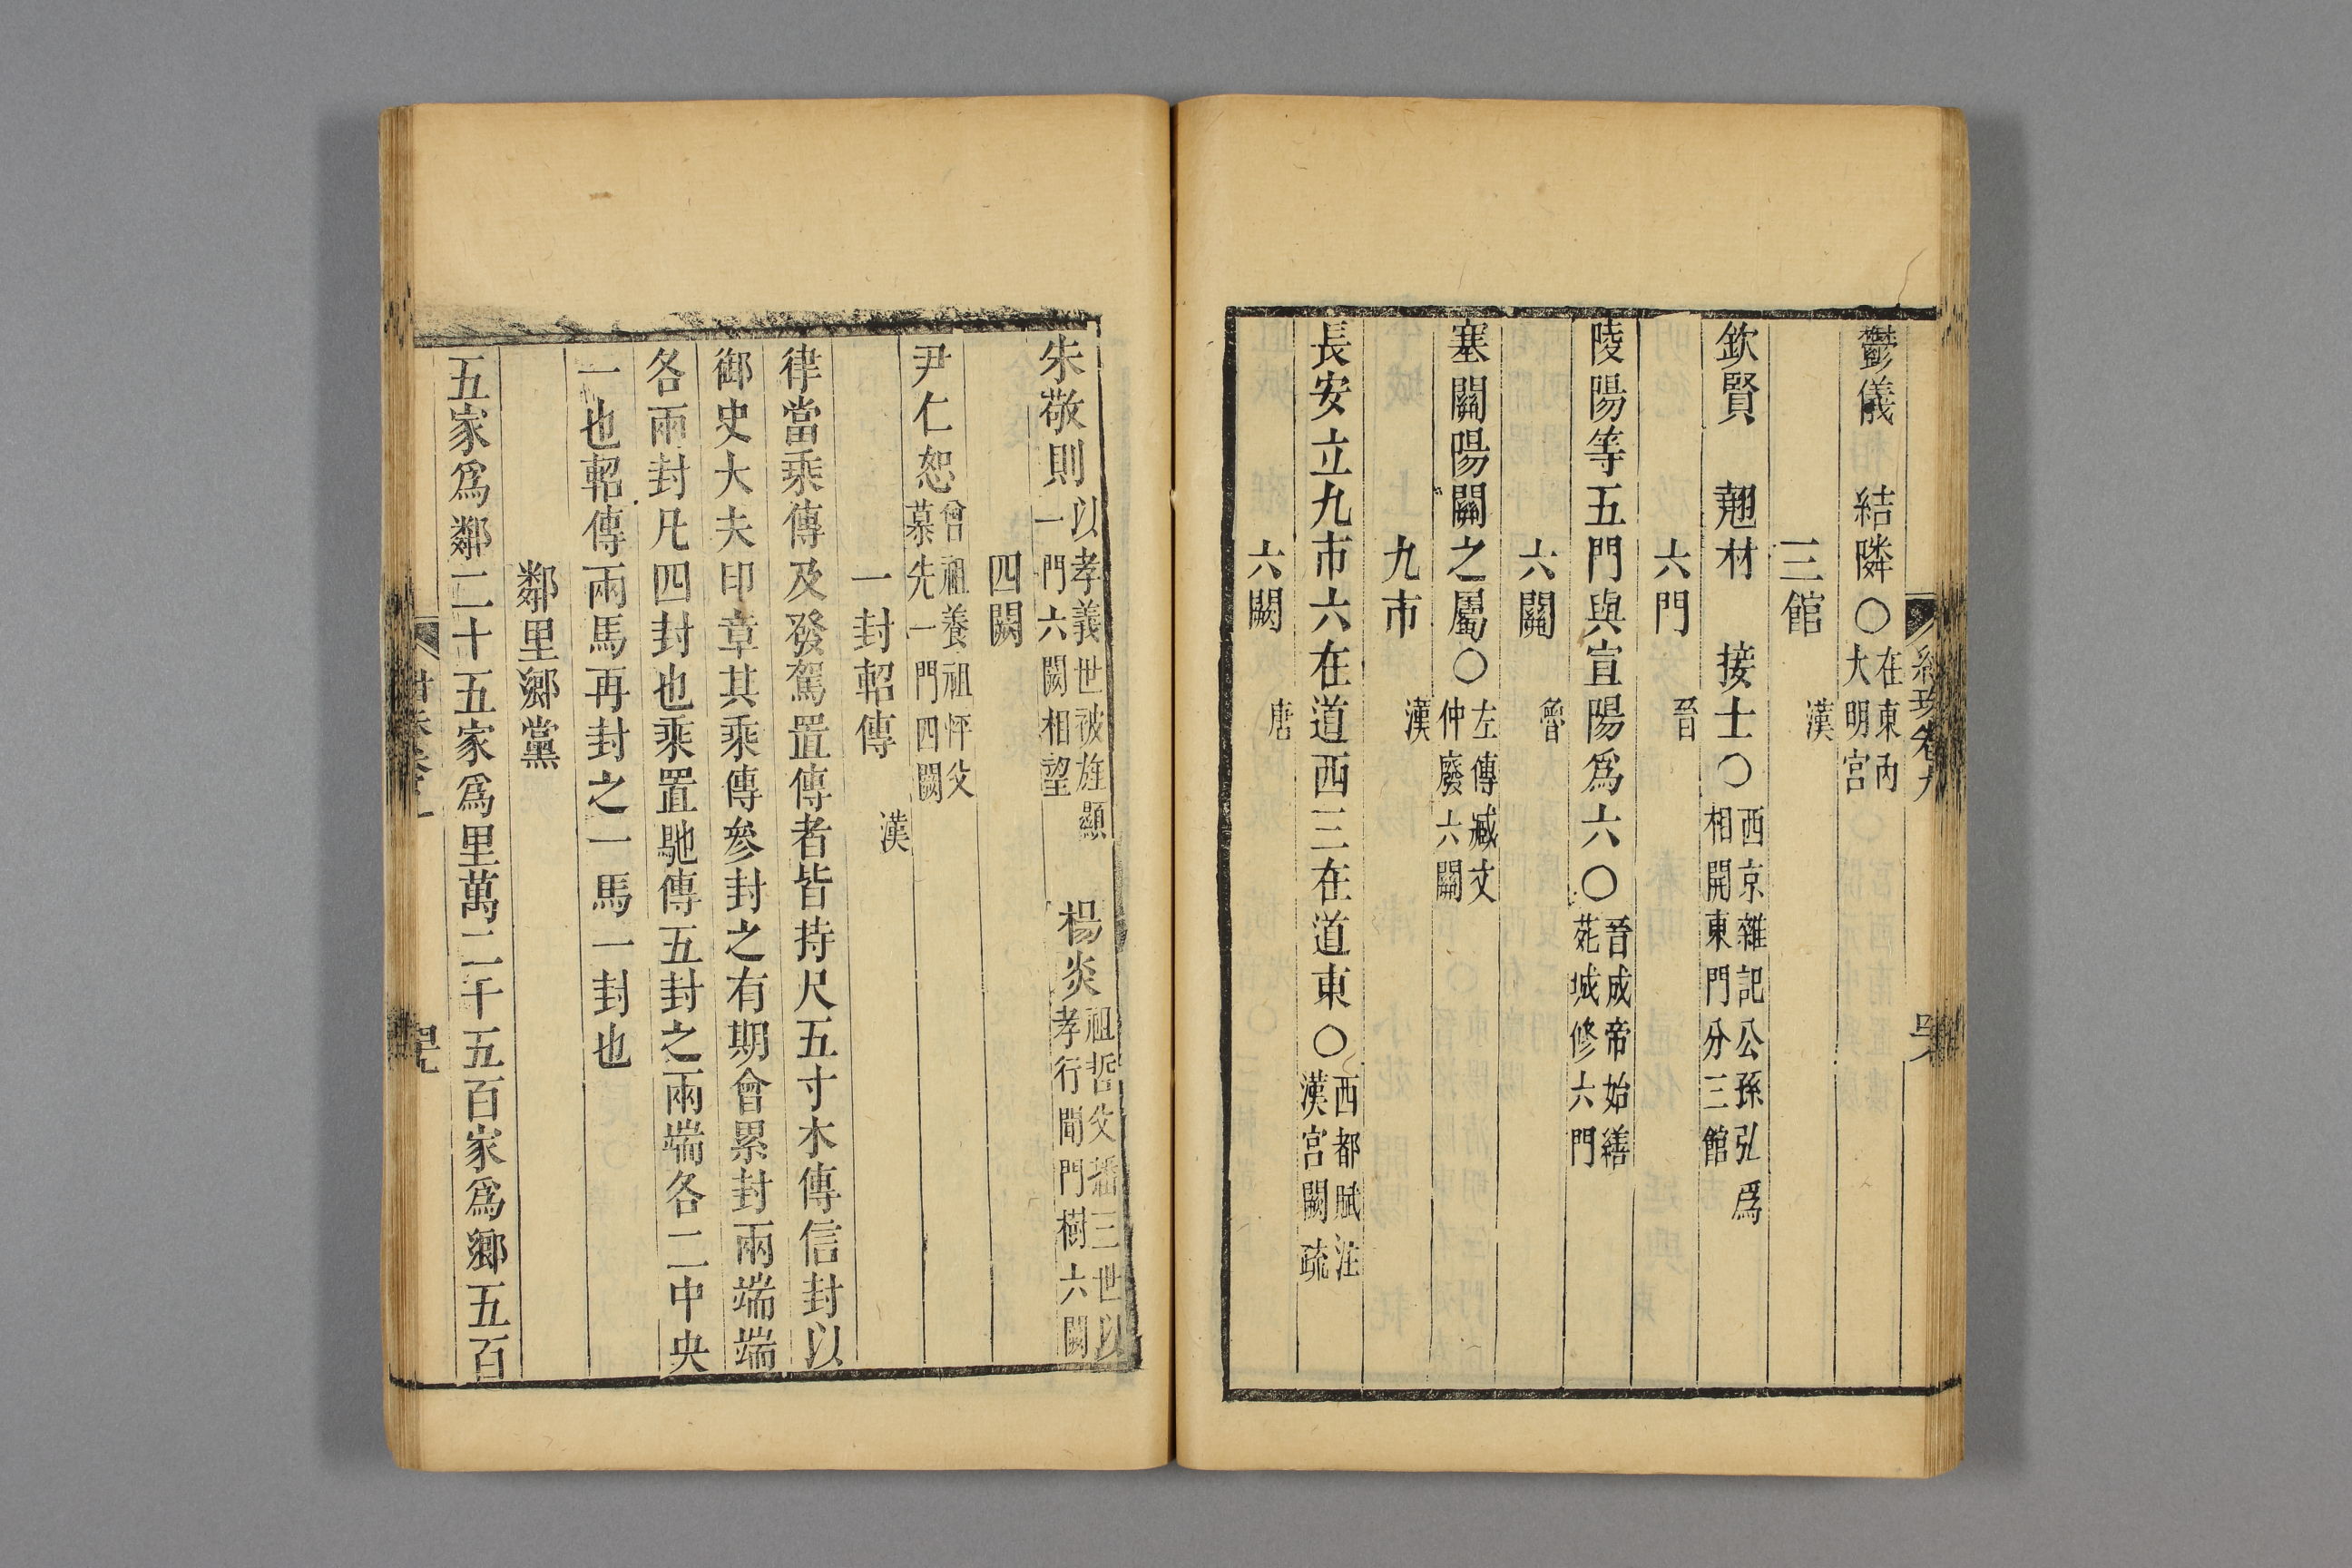 鬱儀　結隣○在東内大明宮
三館　漢
欽賢　翹材　接士○西京雜記公孫弘爲相開東門分三館
六門　晉
陵陽等五門與宣陽爲六○晉成帝始繕苑城修六門
六關　魯
塞關陽關之屬○左傳臧文仲廢六關
九市　漢
長安立九市六在道西三在道東○西都賦注漢宮闕疏
六闕　唐
朱敬則以孝義世被旌顯一門六闕相望　楊炎祖哲父播三世以孝行聞門樹六闕
四闕
尹仁恕曾祖養祖怦父慕先一門四闕
一封軺傳　漢
律當乘傳及發駕置傳者皆持尺五寸木傳信封以
御史大夫印章其乘傳參封之有期會累封兩端端
各兩封凡四封也乘置馳傳五封之兩端各二中央
一也軺傳兩馬再封之一馬一封也
鄰里鄉黨
五家爲鄰二十五家爲里萬二千五百家爲鄉五百